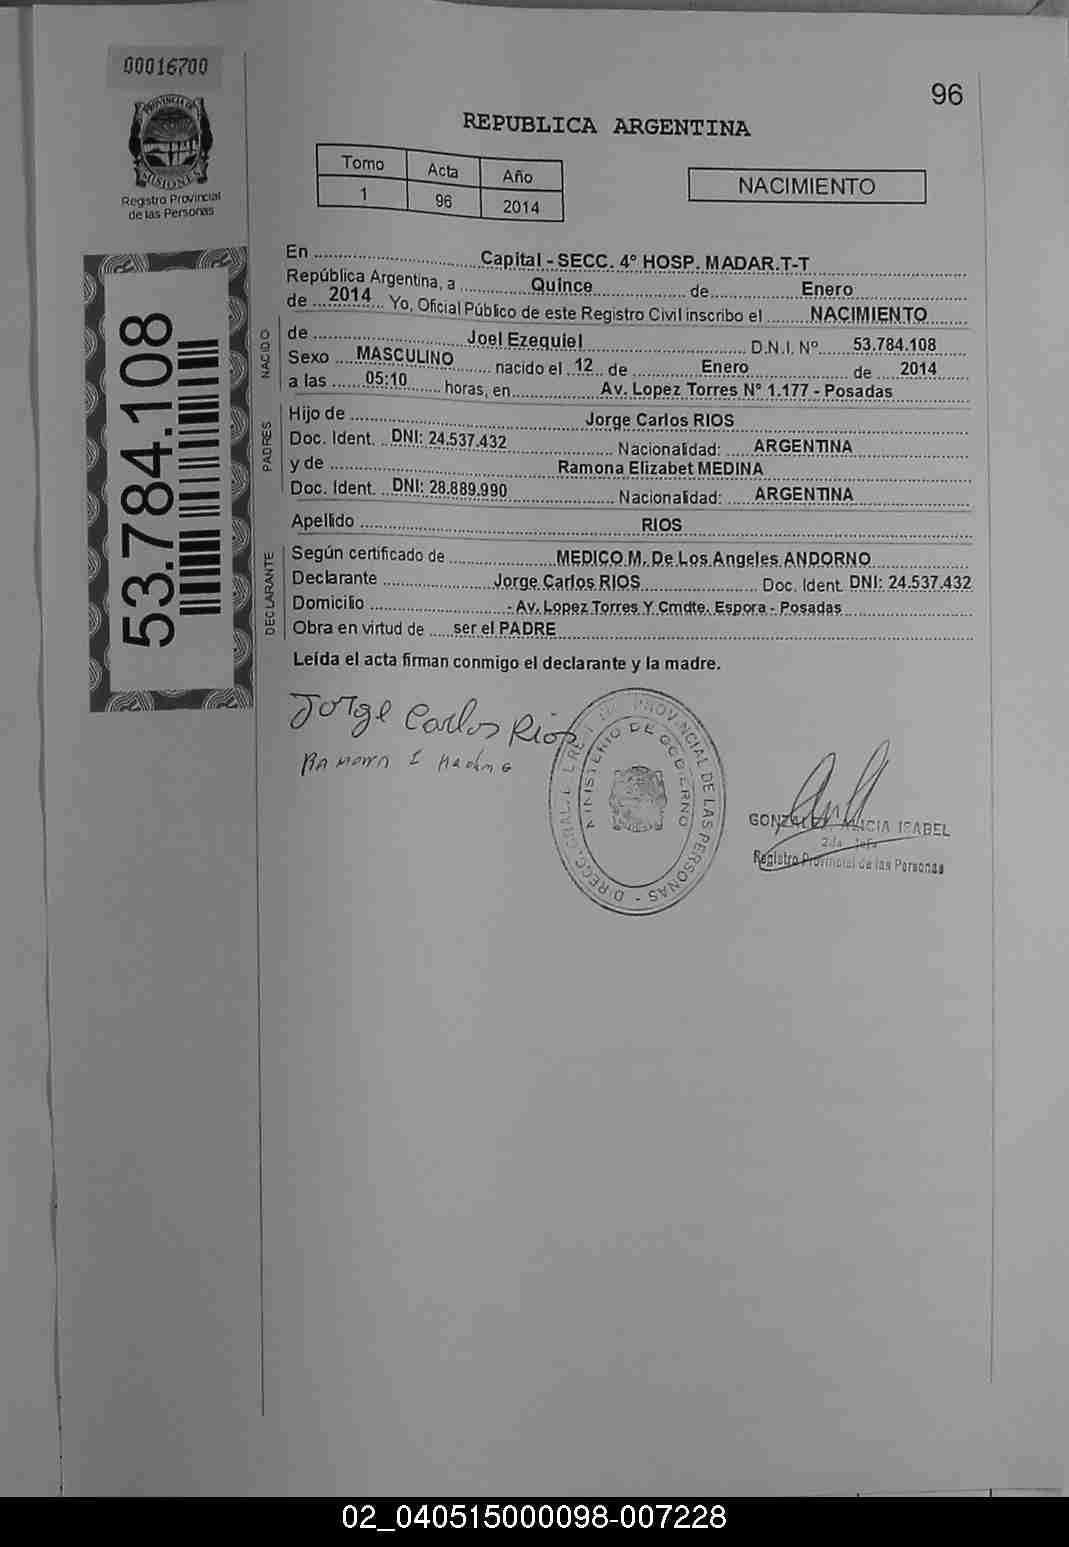 00016700
PROVINCIA DE
MISIONES
Registro Provincial
de las Personas
96
REPUBLICA ARGENTINA
Tomo Acta Año
1 96 2014
NACIMIENTO
53.784.108
En Capital - SECC. 4° HOSP. MADAR.T-T
República Argentina, a Quince de Enero
de 2014 Yo, Oficial Público de este Registro Civil inscribo el NACIMIENTO
NACIDO
de Joel Ezequiel D.N.I. Nº 53.784.108
Sexo MASCULINO nacido el 12 de Enero de 2014
a las 05:10 horas, en Av. Lopez Torres N° 1.177 - Posadas
PADRES
Hijo de Jorge Carlos RIOS
Doc. Ident. DNI: 24.537.432 Nacionalidad: ARGENTINA
y de Ramona Elizabet MEDINA
Doc. Ident. DNI: 28.889.990 Nacionalidad: ARGENTINA
Apellido RIOS
DECLARANTE
Según certificado de MEDICO M. De Los Angeles ANDORNO
Declarante Jorge Carlos RIOS Doc. Ident. DNI: 24.537.432
Domicilio - Av. Lopez Torres Y Cmdte. Espora - Posadas
Obra en virtud de ser el PADRE
Leída el acta firman conmigo el declarante y la madre.
Jorge Carlos Rios
PROVINCIAL DE LAS PERSONAS
MINISTERIO DE GOBIERNO
GONZALEZ, ALICIA ISABEL
Registro Provincial de las Personas
02_040515000098-007228